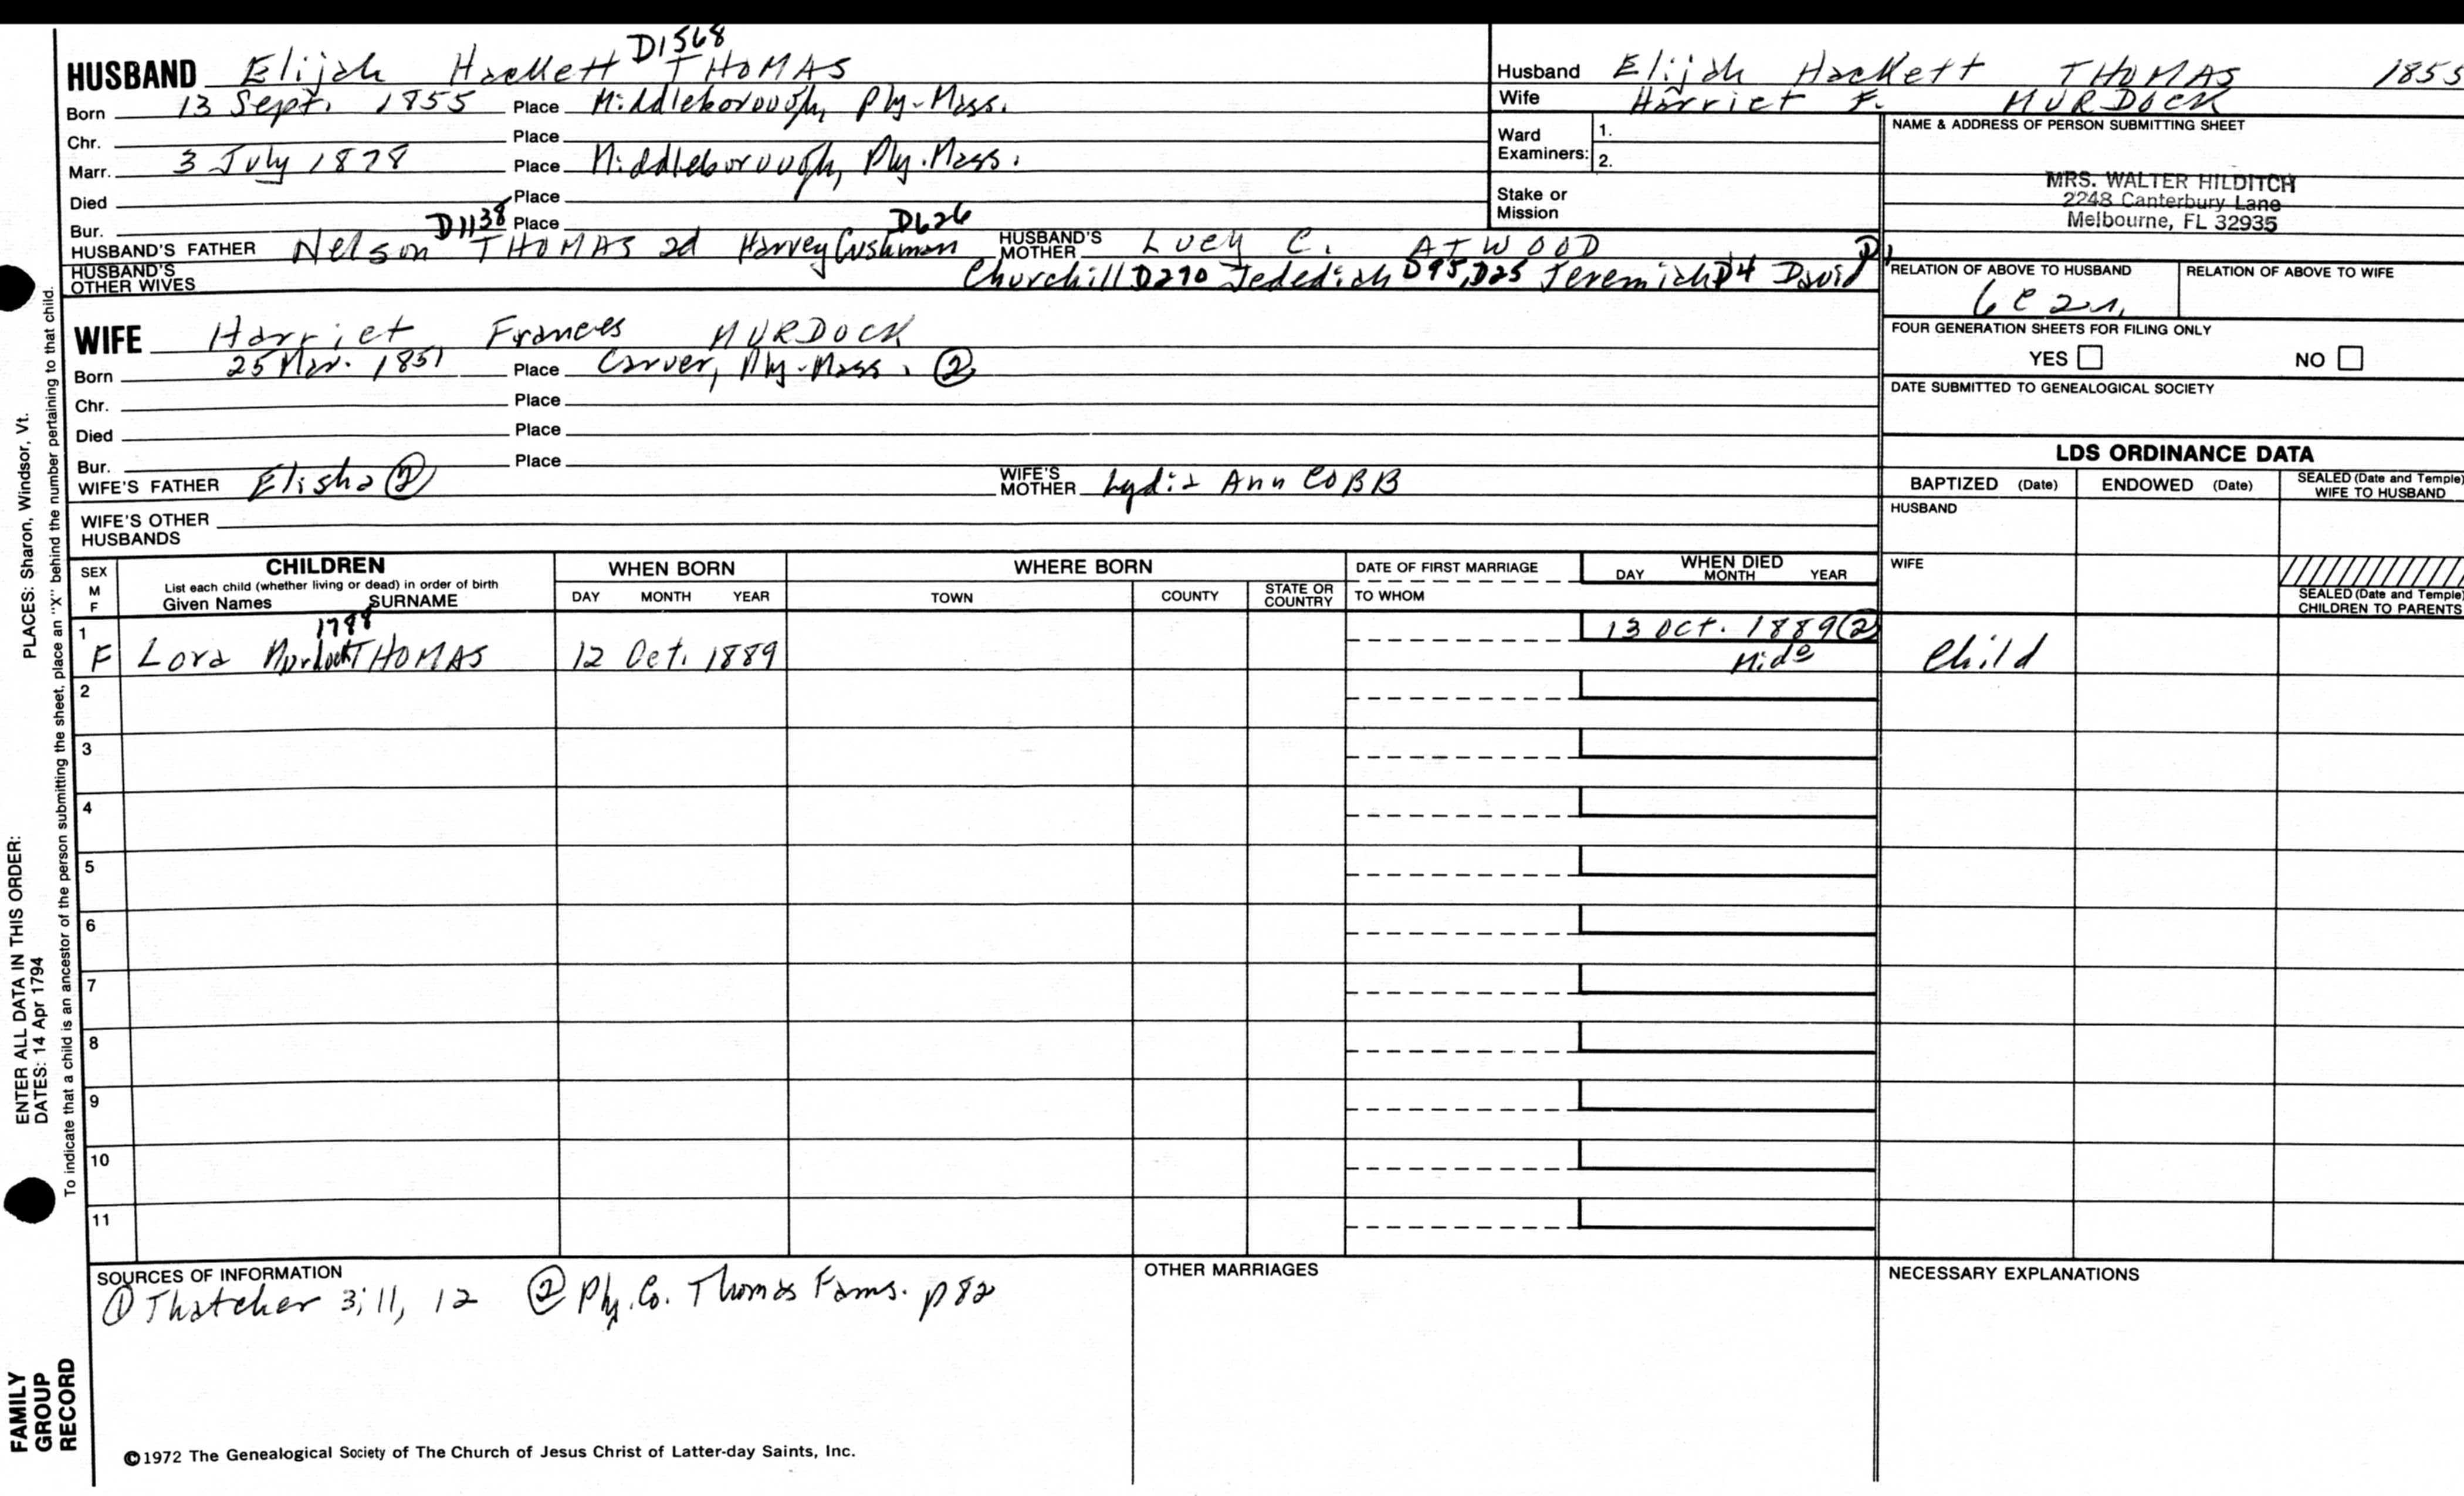 HUSBAND Elijah Hackett D1568 THOMAS
Born 13 Sept. 1855 Place Middleborough, Ply-Mass.
Chr. Place
Marr. 3 July 1878 Place Middleborough, Ply.Mass.
Died Place
Bur. Place
HUSBAND'S FATHER Nelson D1138 THOMAS 2d Harvey Cushman D626 HUSBAND'S MOTHER Lucy C. ATWOOD
HUSBAND'S OTHER WIVES Churchill D270 Jedediah D95, D25 Jeremiah D4 David D1
WIFE Harriet Frances MURDOCK
Born 25 Mar. 1851 Place Carver, Ply-Mass. ②
Chr. Place
Died Place
Bur. Place
WIFE'S FATHER Elisha ② WIFE'S MOTHER Lydia Ann COBB
WIFE'S OTHER HUSBANDS
Husband Elijah Hackett THOMAS 1855
Wife Harriet F. MURDOCK
Ward Examiners: 1.
2.
Stake or Mission
NAME & ADDRESS OF PERSON SUBMITTING SHEET
MRS. WALTER HILDITCH
2248 Canterbury Lane
Melbourne, FL 32935
RELATION OF ABOVE TO HUSBAND RELATION OF ABOVE TO WIFE
6C2r
FOUR GENERATION SHEETS FOR FILING ONLY
YES NO
DATE SUBMITTED TO GENEALOGICAL SOCIETY
LDS ORDINANCE DATA
BAPTIZED (Date) ENDOWED (Date) SEALED (Date and Temple) WIFE TO HUSBAND
HUSBAND
WIFE
SEALED (Date and Temple) CHILDREN TO PARENTS
SEX M F CHILDREN
List each child (whether living or dead) in order of birth
Given Names SURNAME
WHEN BORN
DAY MONTH YEAR
WHERE BORN
TOWN COUNTY STATE OR COUNTRY
DATE OF FIRST MARRIAGE
TO WHOM
WHEN DIED
DAY MONTH YEAR
1 F Lora Murdock 1788 THOMAS 12 Oct. 1889 13 Oct. 1889 ② Mido Child
2
3
4
5
6
7
8
9
10
11
SOURCES OF INFORMATION
① Thatcher 3; 11, 12 ② Ply. Co. Thomas Fams. p82
OTHER MARRIAGES
NECESSARY EXPLANATIONS
©1972 The Genealogical Society of The Church of Jesus Christ of Latter-day Saints, Inc.
FAMILY GROUP RECORD
ENTER ALL DATA IN THIS ORDER:
DATES: 14 Apr 1794
PLACES: Sharon, Windsor, Vt.
To indicate that a child is an ancestor of the person submitting the sheet, place an "X" behind the number pertaining to that child.